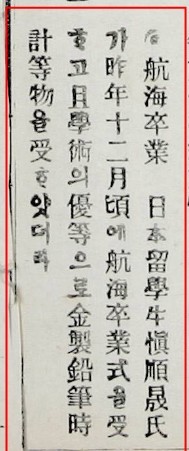 航海卒業 日本留學生愼順晟氏
가昨年十二月頃에航海卒業式을受
하고且學術의優等으로金製鉛筆時
計等物을受하얏더라